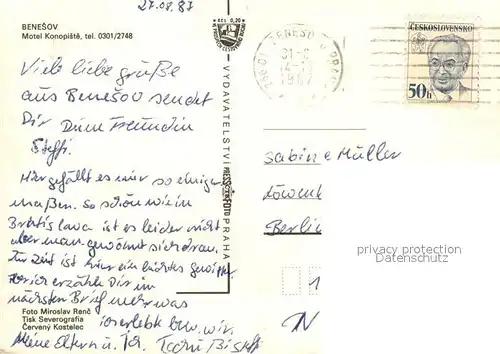 27.08.87
BENEŠOV
Motel Konopiště, tel. 0301/2748
Viele liebe Grüße
aus Benešov sendet
Dir Deine Freundin
Steffi.
Hier gefällt es mir so einiger
maßen. So schön wie in
Bratislava ist es leider nicht
aber man gewöhnt sich dran.
Zur Zeit ist hier ein
ich erzähle Dir im
nächsten Brief mehr was
Foto Miroslav Renč
Tisk Severografia
Červený Kostelec
wir
Meine Eltern u. ich. Tschüß Steffi
Kčs 0,20
VYDAVATELSTVÍ PRESSFOTO PRAHA
BENEŠOV
31.8.
1987
ČESKOSLOVENSKO
50h
Sabine Müller
Berlin
1
privacy protection
Datenschutz